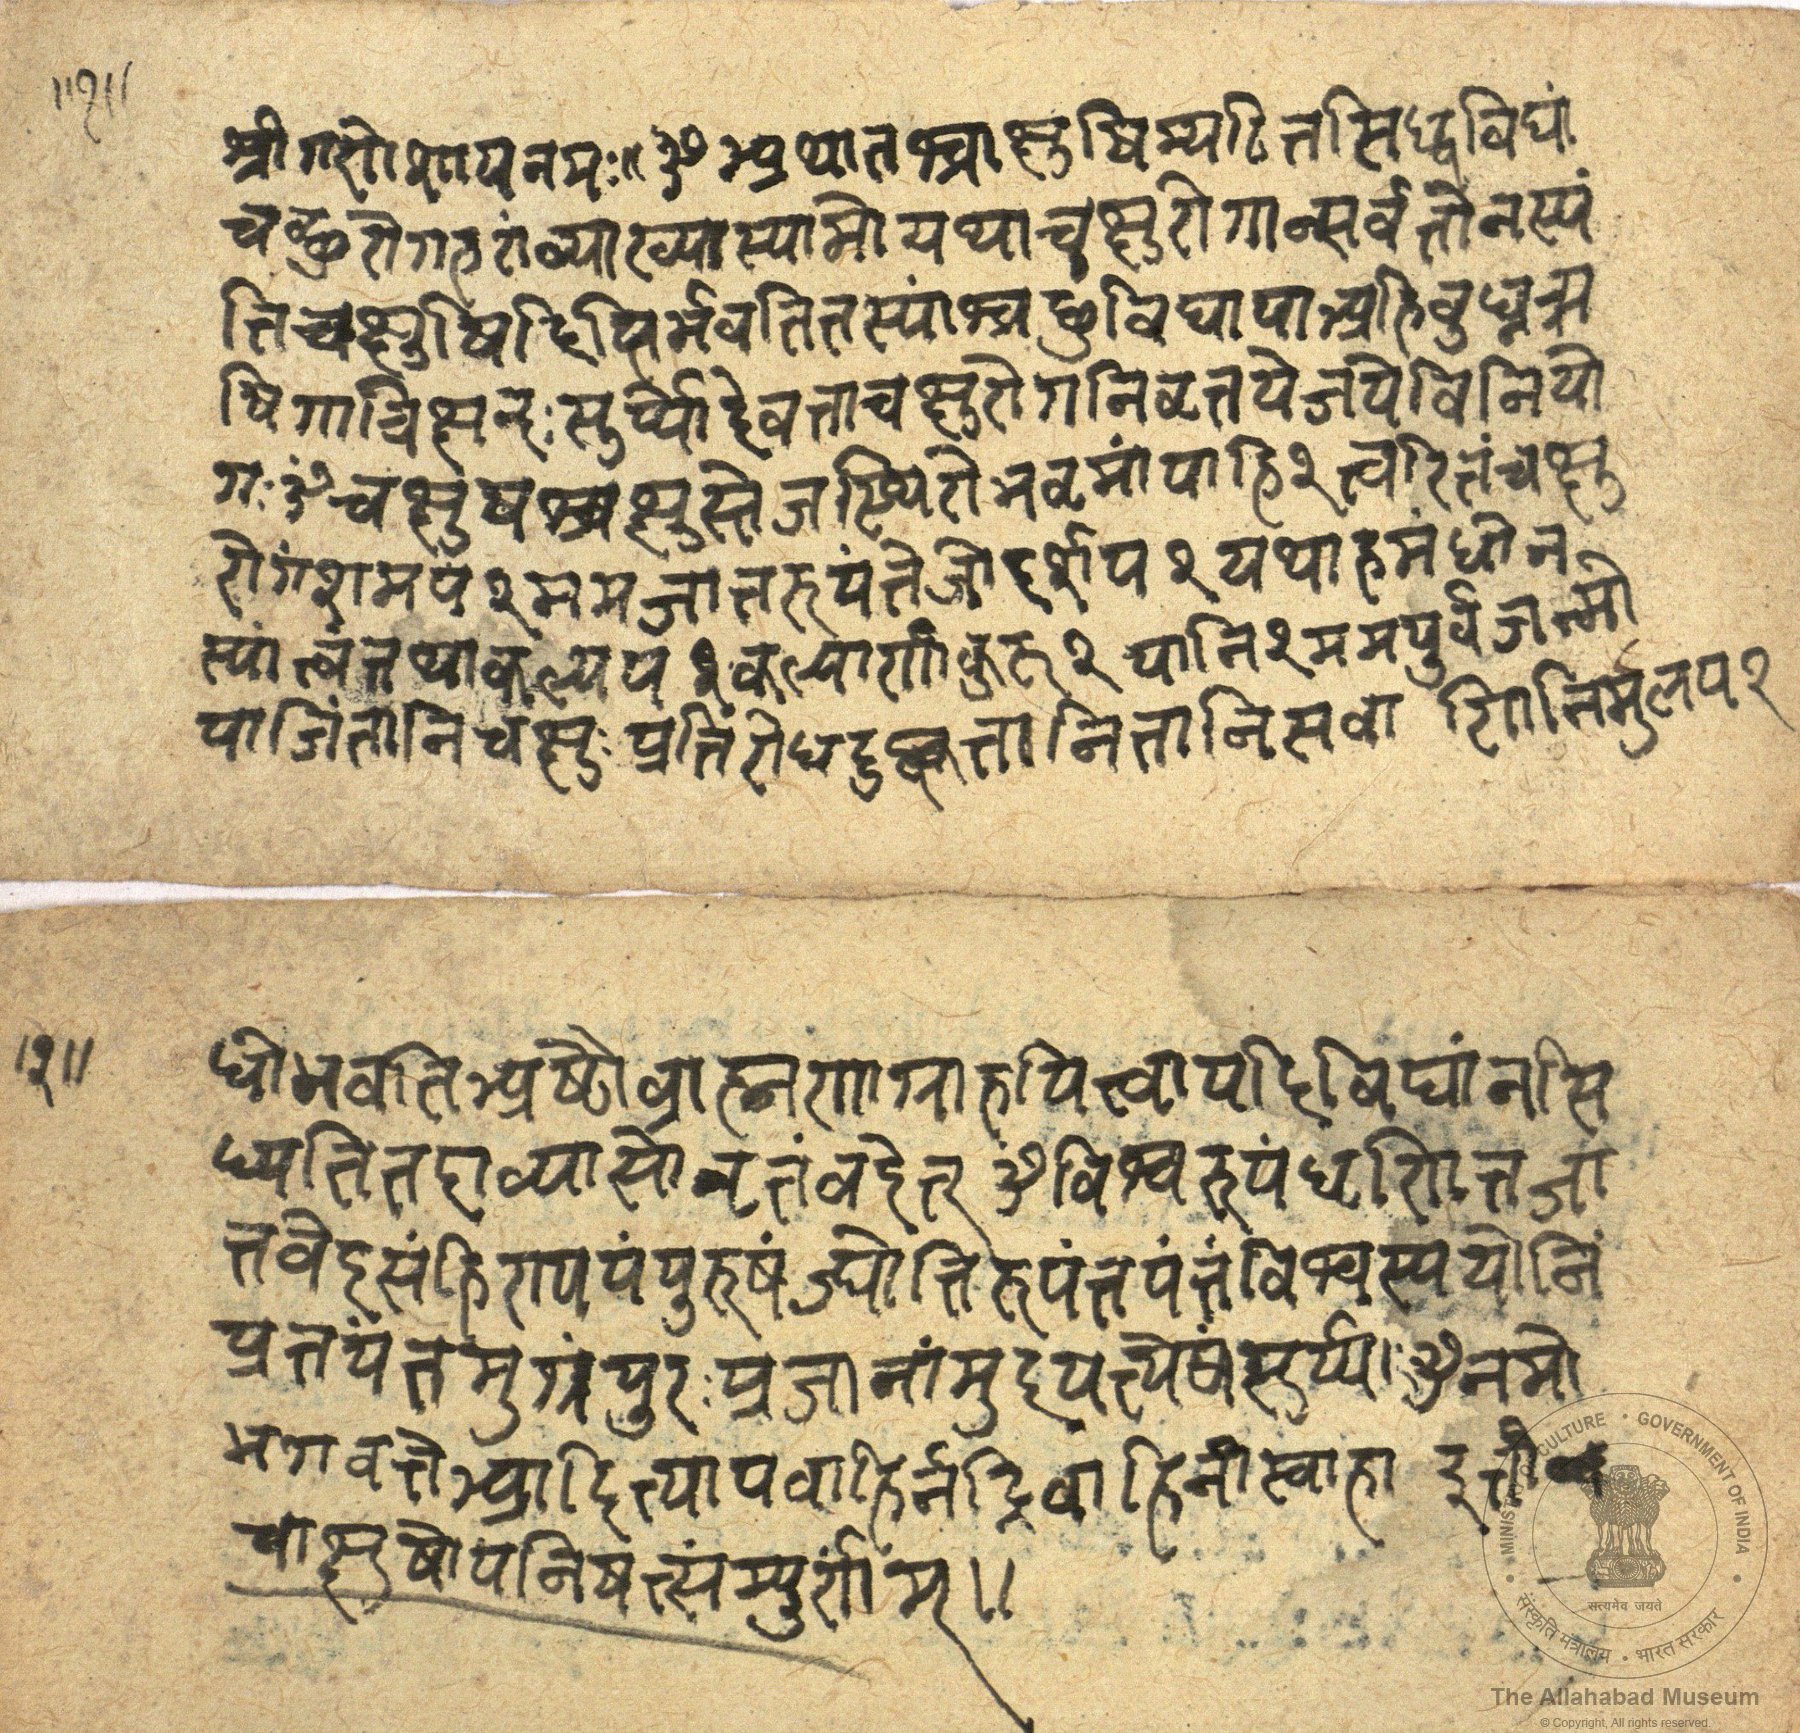 ॥१॥
श्रीगणेशायनमः॥ ॐ अथातश्चाक्षुषिम्पठितसिध्दविद्यां
चक्षुरोगहरांव्याख्यास्यामोयथाचक्षुरोगान्सर्वत्तोनस्यं
तिचक्षुषिदिप्तिर्भवतितस्यांश्चक्षुविद्यायाअहिबुध्नऋ
षिगात्रिछन्दःसुर्य्योदेवत्ताचक्षुरोगनिवृतयेजपेविनियो
गःॐचक्षुषश्चक्षुस्तेजस्थिरोभवमांपाहि२त्वरितंचक्षु
रोगंशमय२ममजातरूपंतेजोदर्शय२यथाहमंधोन
स्यांत्वंतथाकल्पय२कल्याणंकुरु२यानि२ममपुर्वजन्मो
पार्जितानिचक्षुःप्रतिरोधदुष्कृतानितानिसर्वाणिनिर्मुलय२
॥२॥
धोभवतिअष्टौव्राह्मणाग्राहयित्वायदिविद्यांनसि
ध्यतितदाव्यासोवतंवदेत् ॐविश्वरूपंघृणितजा
तवेदसंहिरण्यपंपुरुषंज्योतिरूपंतपंतंविश्वस्ययोनिं
प्रतयंतमुग्रंपुरःप्रजानांमुदयत्येषसूर्य्यः ॐनमो
भगवतेआदित्यायवाहिर्नदिवाहिनीस्वाहा इती
चाक्षुषोपनिषत्संम्पुर्णंम्॥
MINISTRY OF CULTURE • GOVERNMENT OF INDIA
सत्यमेव जयते
संस्कृति मंत्रालय • भारत सरकार
The Allahabad Museum
© Copyright, All rights reserved.